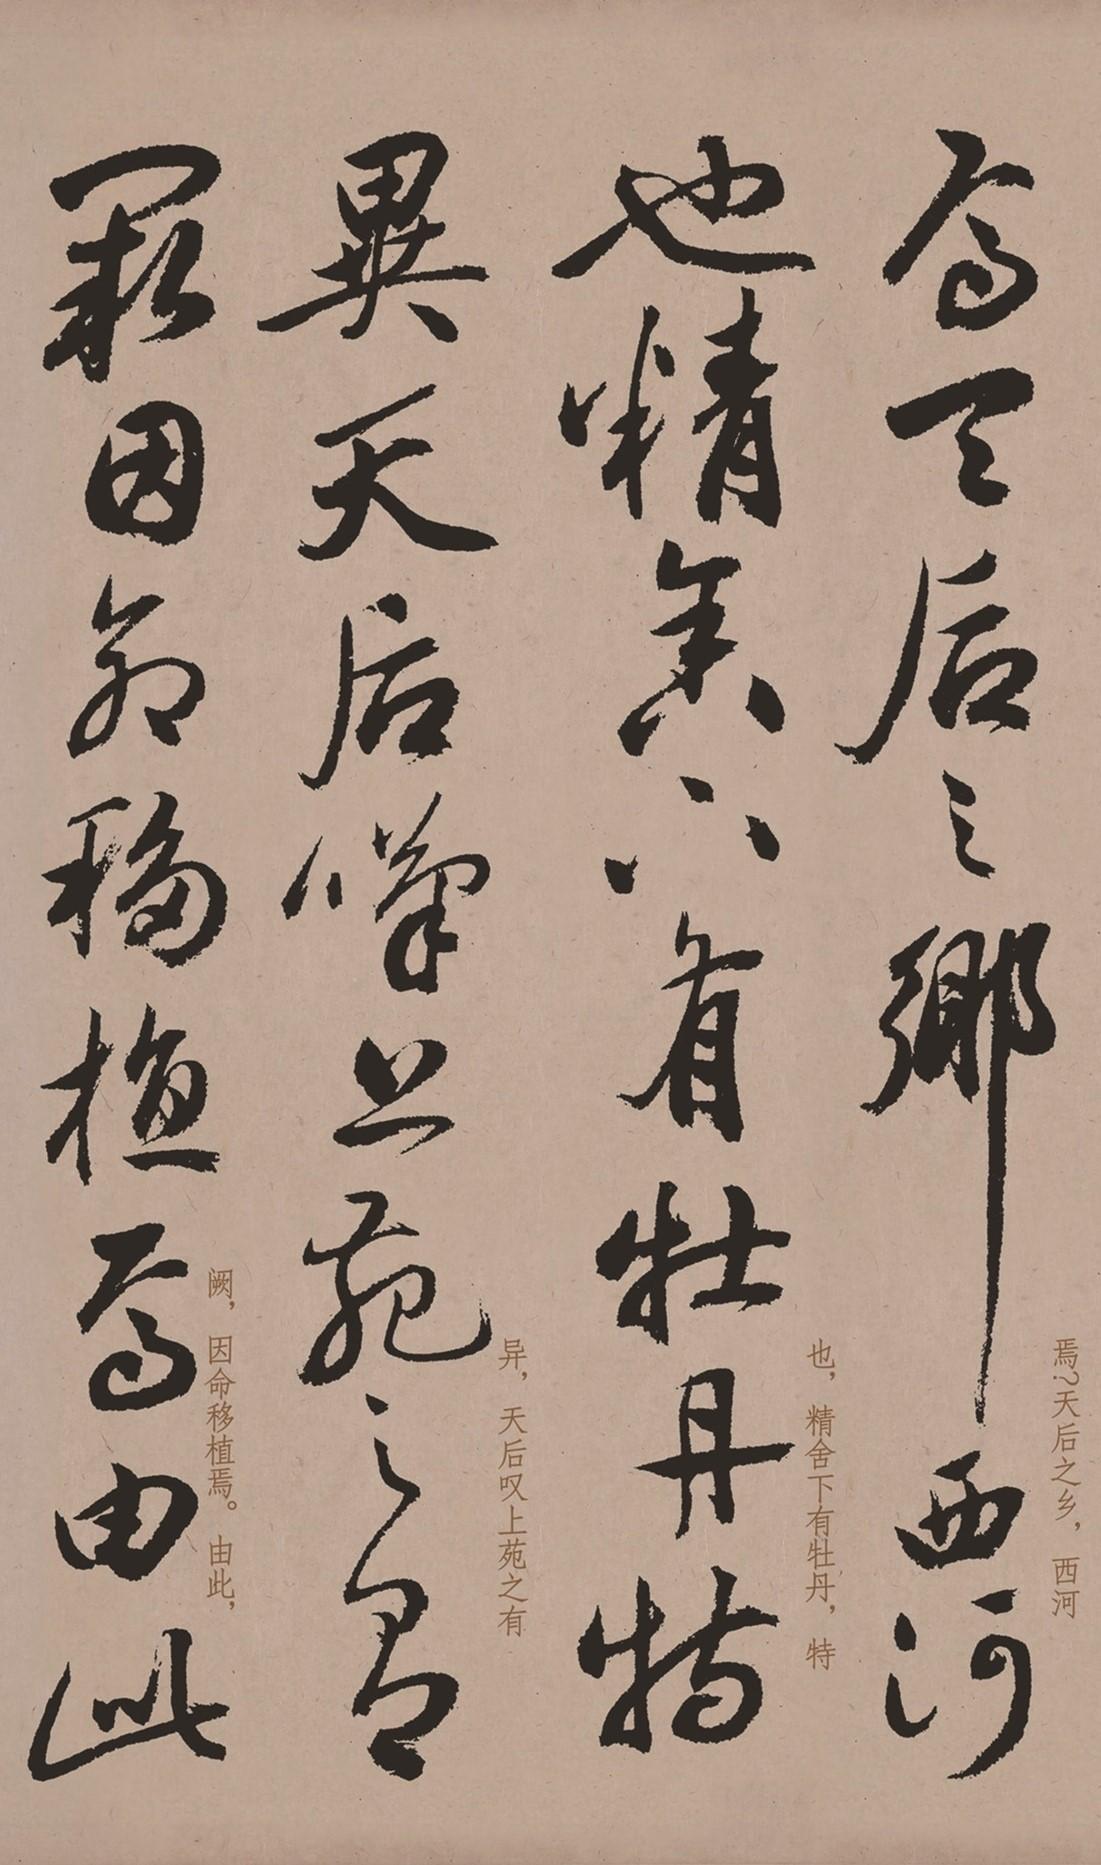 焉天后之鄉西河
焉？天后之乡，西河
也精舍下有牡丹特
也，精舍下有牡丹，特
異天后嘆上苑之有
异，天后叹上苑之有
闕因命移植焉由此
阙，因命移植焉。由此，